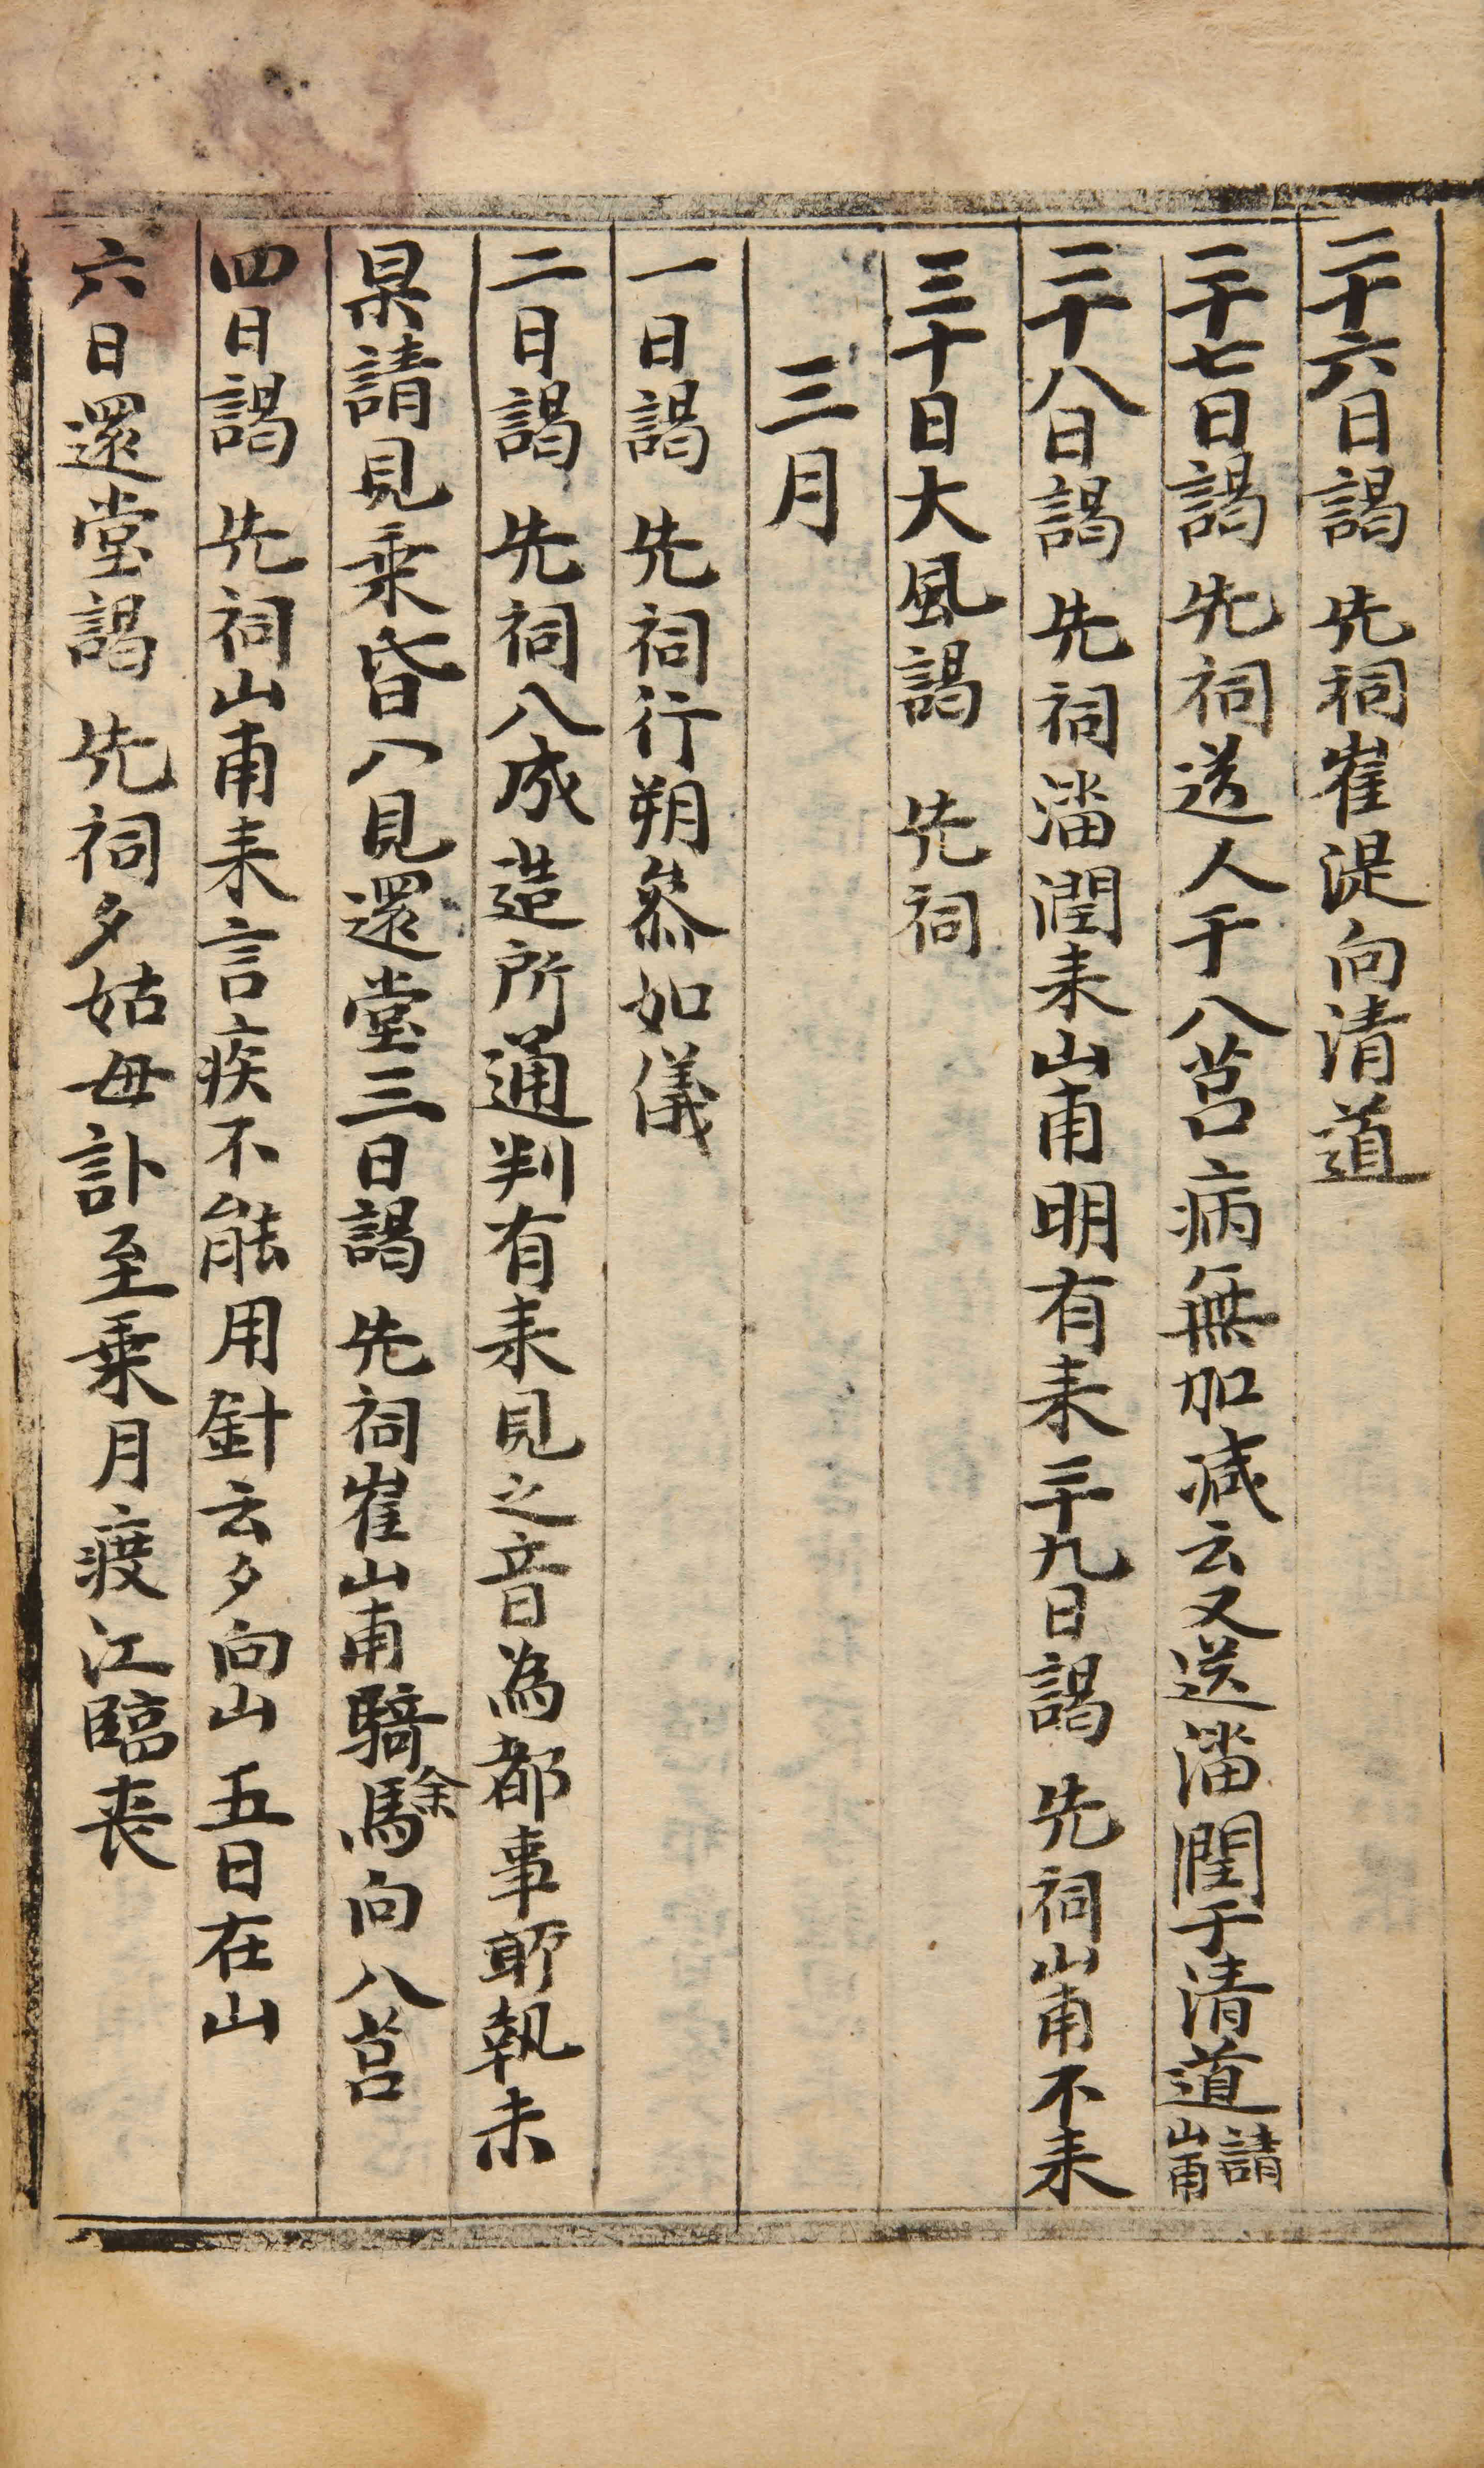 二十六日謁 先祠崔湜向清道
二十七日謁 先祠送人于八莒病無加减云又送淄潤于清道請山甫
二十八日謁 先祠淄潤来山甫明有来二十九日謁 先祠山甫不来
三十日大風謁 先祠
三月
一日謁 先祠行朔叅如儀
二日謁 先祠入成造所通判有来見之音為都事所執未
果請見乗昏入見還堂三日謁 先祠崔山甫騎余馬向八莒
四日謁 先祠山甫来言疾不能用針云夕向山五日在山
六日還堂謁 先祠夕姑母訃至乗月渡江臨丧